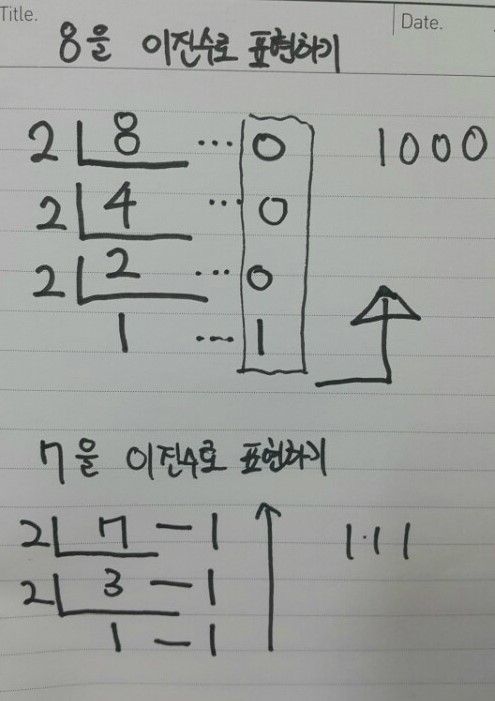 Title.
Date.
8을 이진수로 표현하기
2 8 ... 0 1000
2 4 ... 0
2 2 ... 0
1 ... 1
7을 이진수로 표현하기
2 7 - 1 111
2 3 - 1
1 - 1